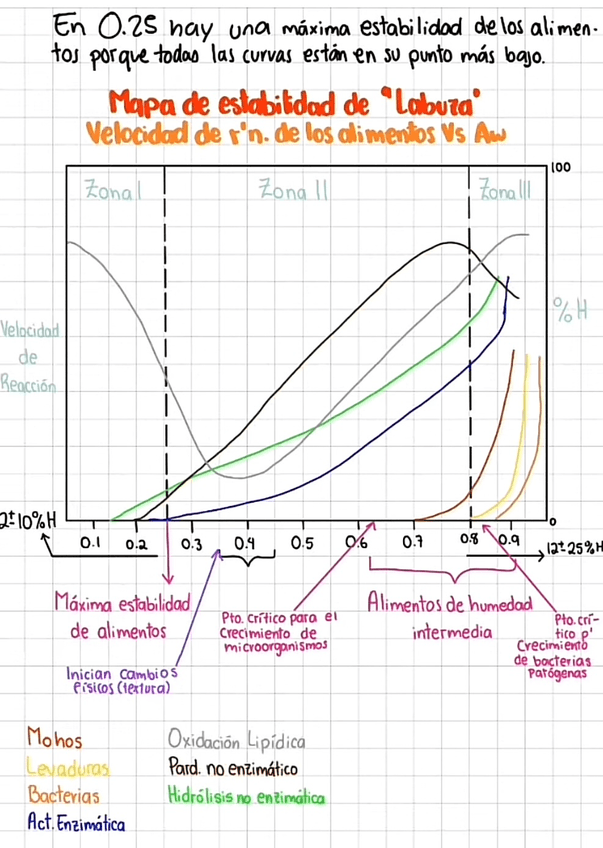 En 0.25 hay una máxima estabilidad de los alimen-
tos porque todas las curvas están en su punto más bajo.
Mapa de estabilidad de "Labuza"
Velocidad de r'n. de los alimentos Vs Aw
100
Zona I
Zona II
Zona III
%H
Velocidad
de
Reacción
2± 10%H
0
0.1 0.2 0.3 0.4 0.5 0.6 0.7 0.8 0.9
12±25%H
Máxima estabilidad
de alimentos
Pto. crítico para el
Crecimiento de
microorganismos
Alimentos de humedad
intermedia
Pto. crí-
tico p'
Crecimiento
de bacterias
Patógenas
Inician Cambios
Físicos (textura)
Mohos
Levaduras
Bacterias
Act. Enzimática
Oxidación Lipídica
Pard. no enzimático
Hidrólisis no enzimática